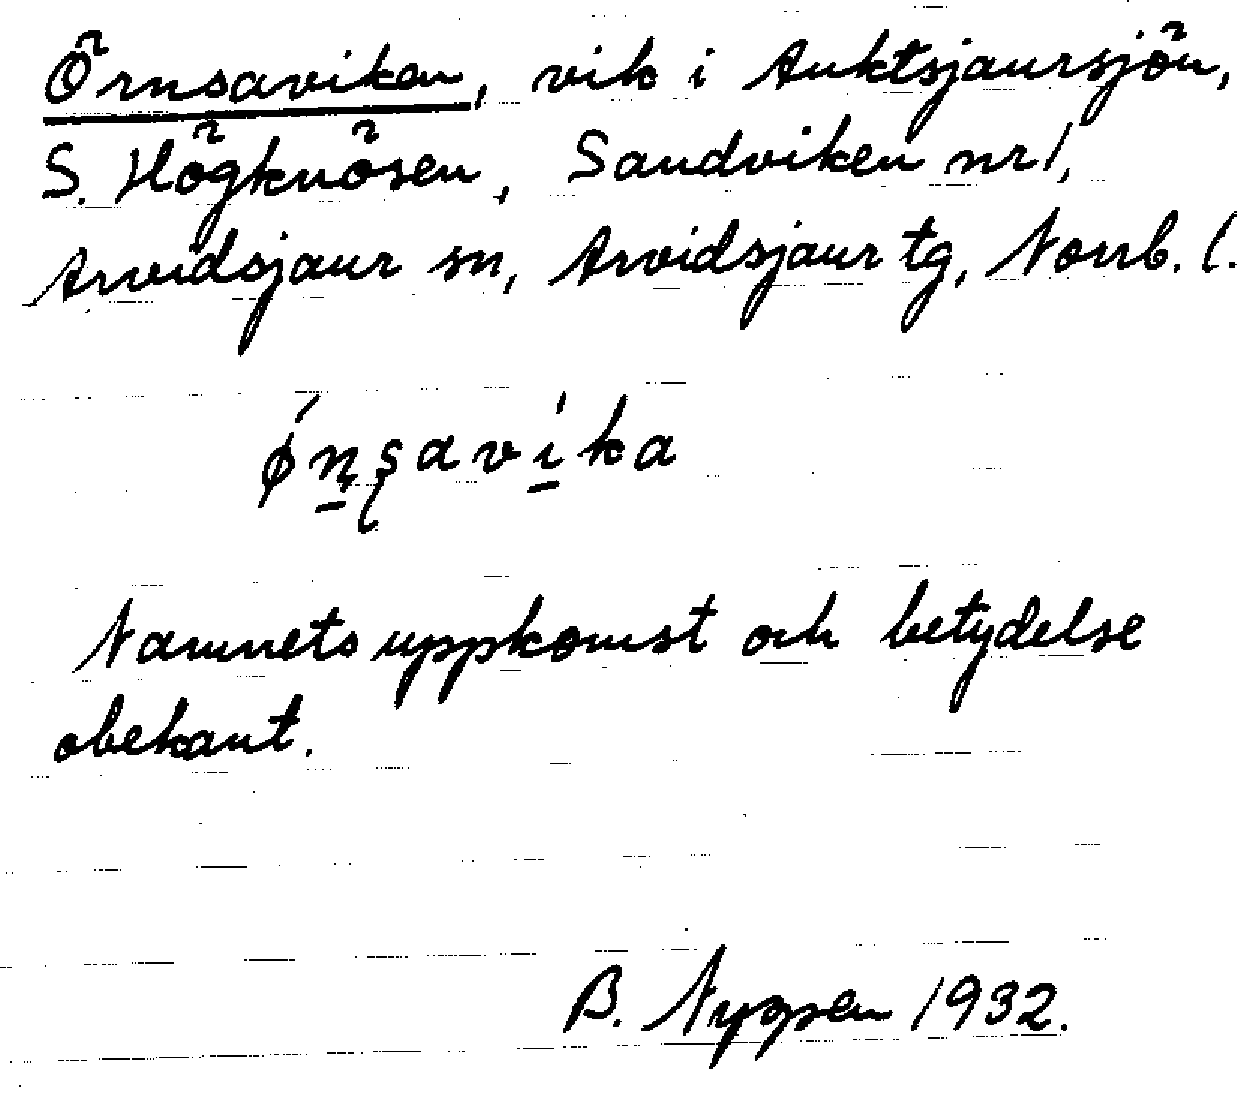 Örnsaviken, vik i Auktsjaursjön,
S. Högknösen, Sandviken nr 1,
Arvidsjaur sn, Arvidsjaur tg, Norrb. l.
ǿn̠ʂaví̠ka
Namnets uppkomst och betydelse
obekant.
B. 1932.